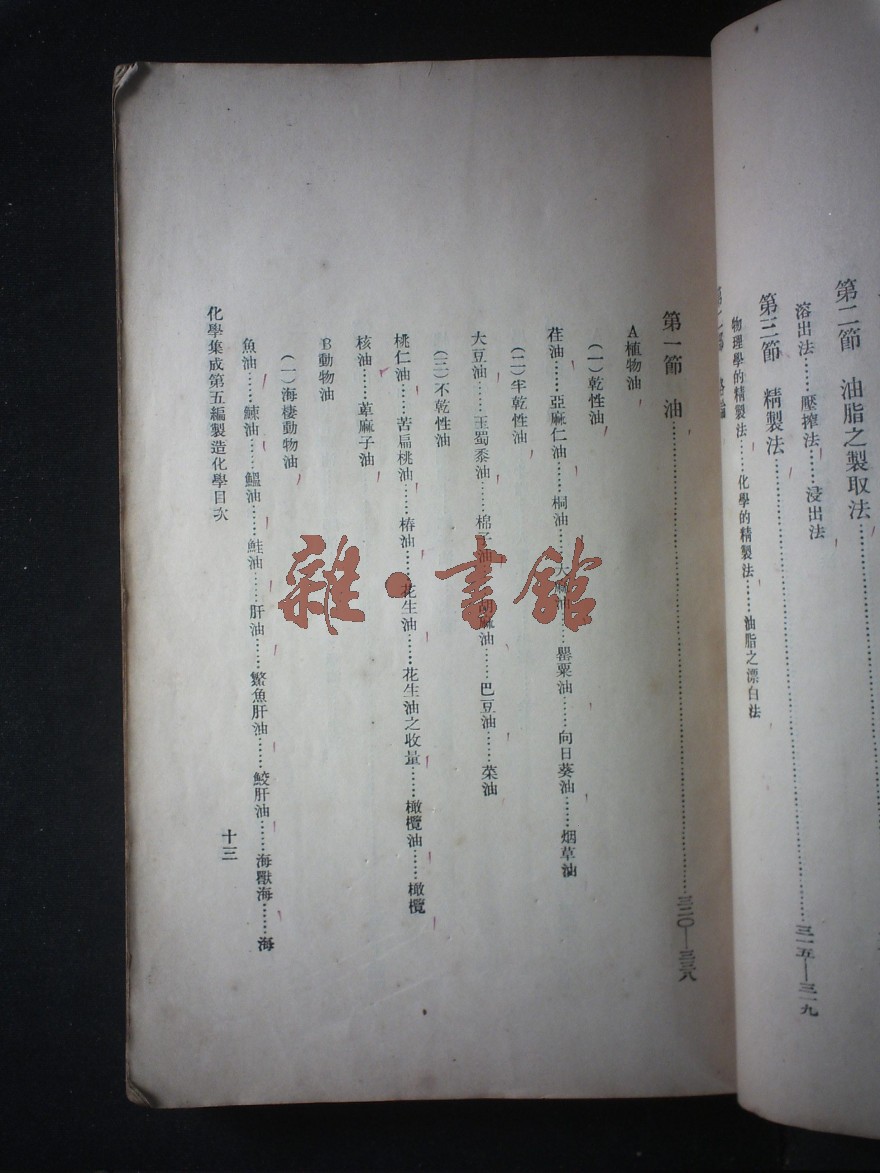 第二節　油脂之製取法…………三一五——三一九
溶出法……壓搾法……浸出法
第三節　精製法
物理學的精製法……化學的精製法……油脂之漂白法
第一節　油…………三二〇—三三八
A植物油
（一）乾性油
荏油……亞麻仁油……桐油……大麻油……罌粟油……向日葵油……烟草油
（二）半乾性油
大豆油……玉蜀黍油……棉子油……胡麻油……巴豆油……菜油
（三）不乾性油
桃仁油……苦扁桃油……椿油……花生油……花生油之收量……橄欖油……橄欖
核油……萆麻子油
B動物油
（一）海棲動物油
魚油……鰊油……鰮油……鮭油……肝油……鱉魚肝油……鮫肝油……海獸海……海
化學集成第五編製造化學目次
十三
雜·書館